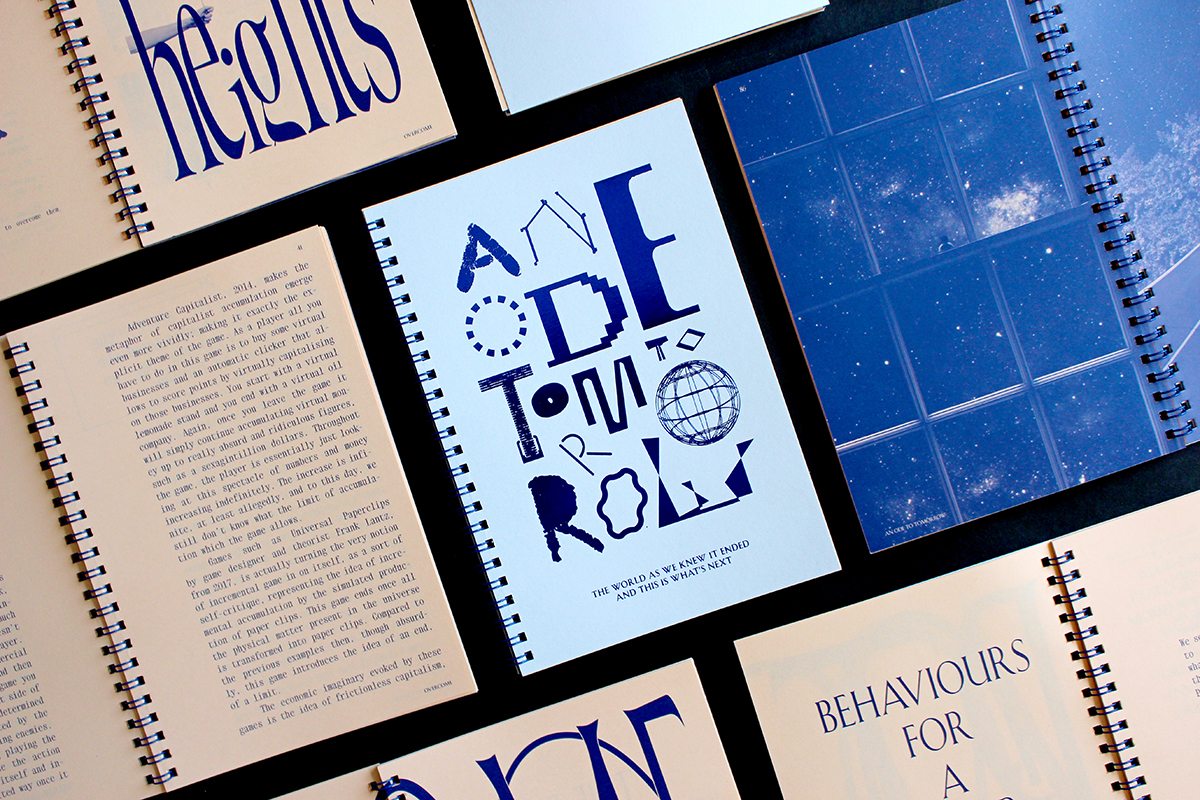 heights
OVERCOME
to overcome them.
41
Adventure Capitalist, 2014, makes the
metaphor of capitalist accumulation emerge
even more vividly; making it exactly the ex-
plicit theme of the game. As a player all you
have to do in this game is to buy some virtual
businesses and an automatic clicker that al-
lows to score points by virtually capitalising
on those businesses. You start with a virtual
lemonade stand and you end with a virtual oil
company. Again, once you leave the game it
will simply continue accumulating virtual mon-
ey up to really absurd and ridiculous figures,
such as a sexagintillion dollars. Throughout
the game, the player is essentially just look-
ing at this spectacle of numbers and money
increasing indefinitely. The increase is infi-
nite, at least allegedly, and to this day, we
still don't know what the limit of accumula-
tion which the game allows.
Games such as Universal Paperclips
by game designer and theorist Frank Lantz,
from 2017, is actually turning the very notion
of incremental game in on itself, as a sort of
self-critique, representing the idea of incre-
mental accumulation by the simulated produc-
tion of paper clips. This game ends once all
the physical matter present in the universe
is transformed into paper clips. Compared to
the previous examples then, though absurd-
ly, this game introduces the idea of an end,
of a limit.
The economic imaginary evoked by these
games is the idea of frictionless capitalism,
OVERCOME
game you
side of
determined
by the
enemies.
playing the
the action
itself and in-
way once it
AN
ODE
TO
TOMO
R
ROW
THE WORLD AS WE KNEW IT ENDED
AND THIS IS WHAT'S NEXT
86
AN ODE TO TOMORROW
BEHAVIOURS
FOR
A
We
to